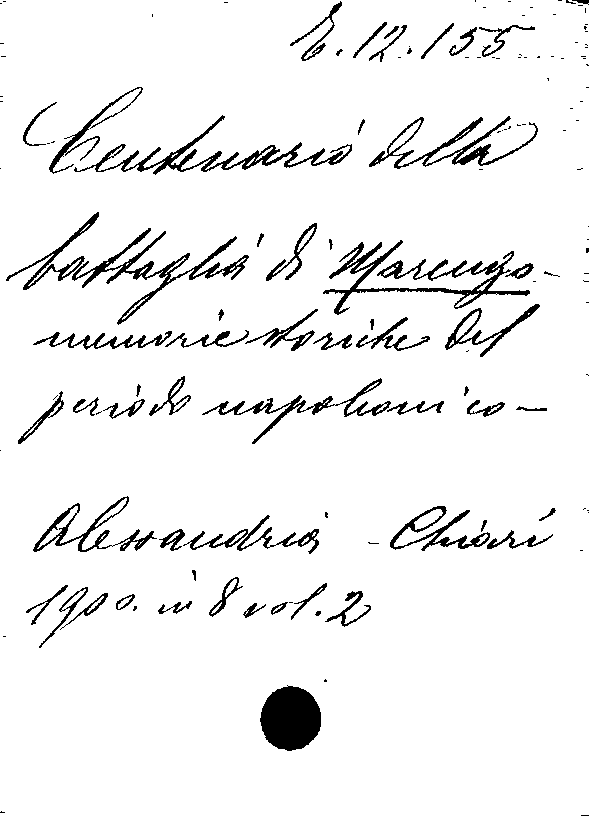 E.12.155
Centenario della
battaglia di Marengo-
memorie storiche del
periodo napoleonico-
Alessandria - Chiari
1900. in 8 vol. 2